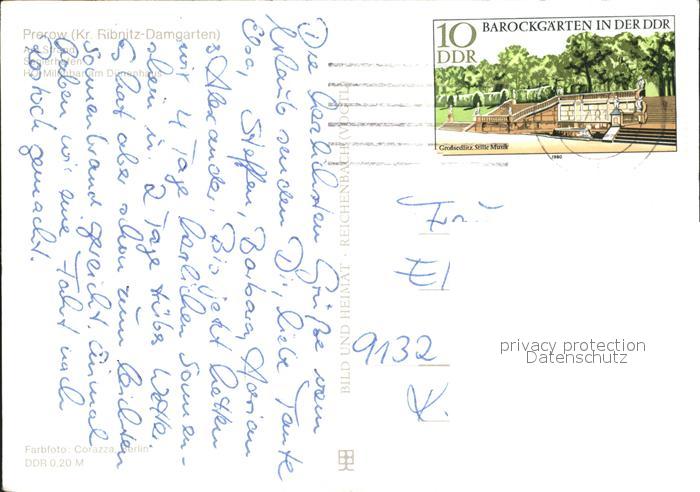 Prerow (Kr. Ribnitz-Damgarten)
Am Strand
HO Milchbar im Dünenhaus
Die herzlichsten Grüße vom
Urlaub senden Dir, liebe Tante
Elsa, Steffen, Barbara, Marian
u. Alexander. Bis jetzt hatten
wir 4 Tage herrlichen Sonnen-
schein u. 2 Tage trübes Wetter.
Es hat aber schon zum leichten
Sonnenbrand gereicht. Einmal
haben wir eine Fahrt nach
gemacht.
Farbfoto: Corazza, Berlin
DDR 0,20 M
BILD UND HEIMAT · REICHENBACH (VOGTL)
10
DDR
BAROCKGÄRTEN IN DER DDR
Großsedlitz, Stille Musik
1980
9132
K.
privacy protection
Datenschutz